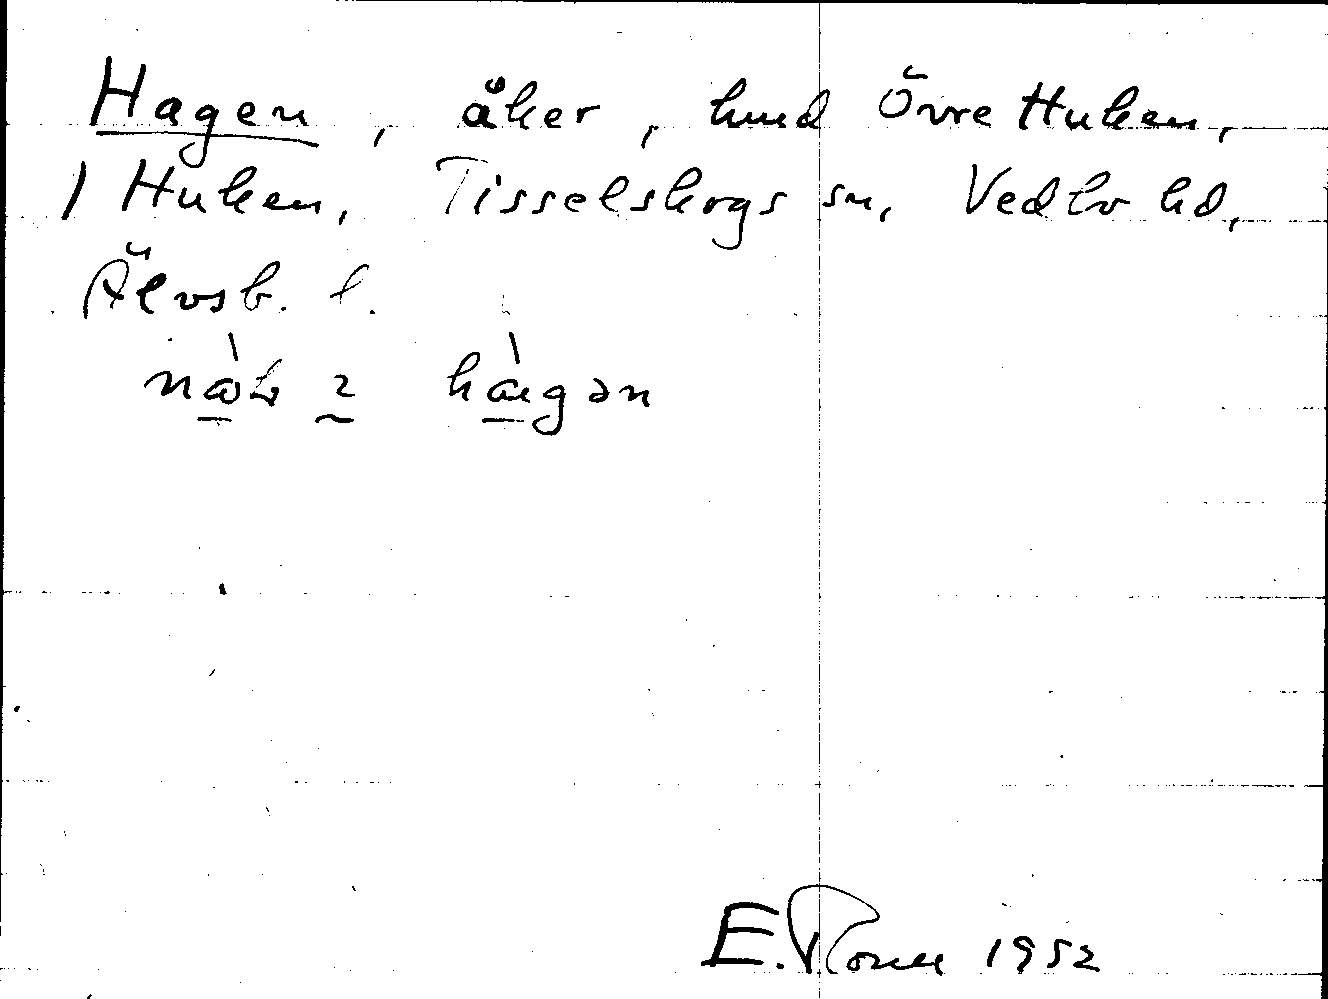 Hagen, åker, hmd Övre Huken,
1 Huken, Tisselskogs sn, Vedbo hd,
Älvsb. l.
hàgən
E. Rosell 1952